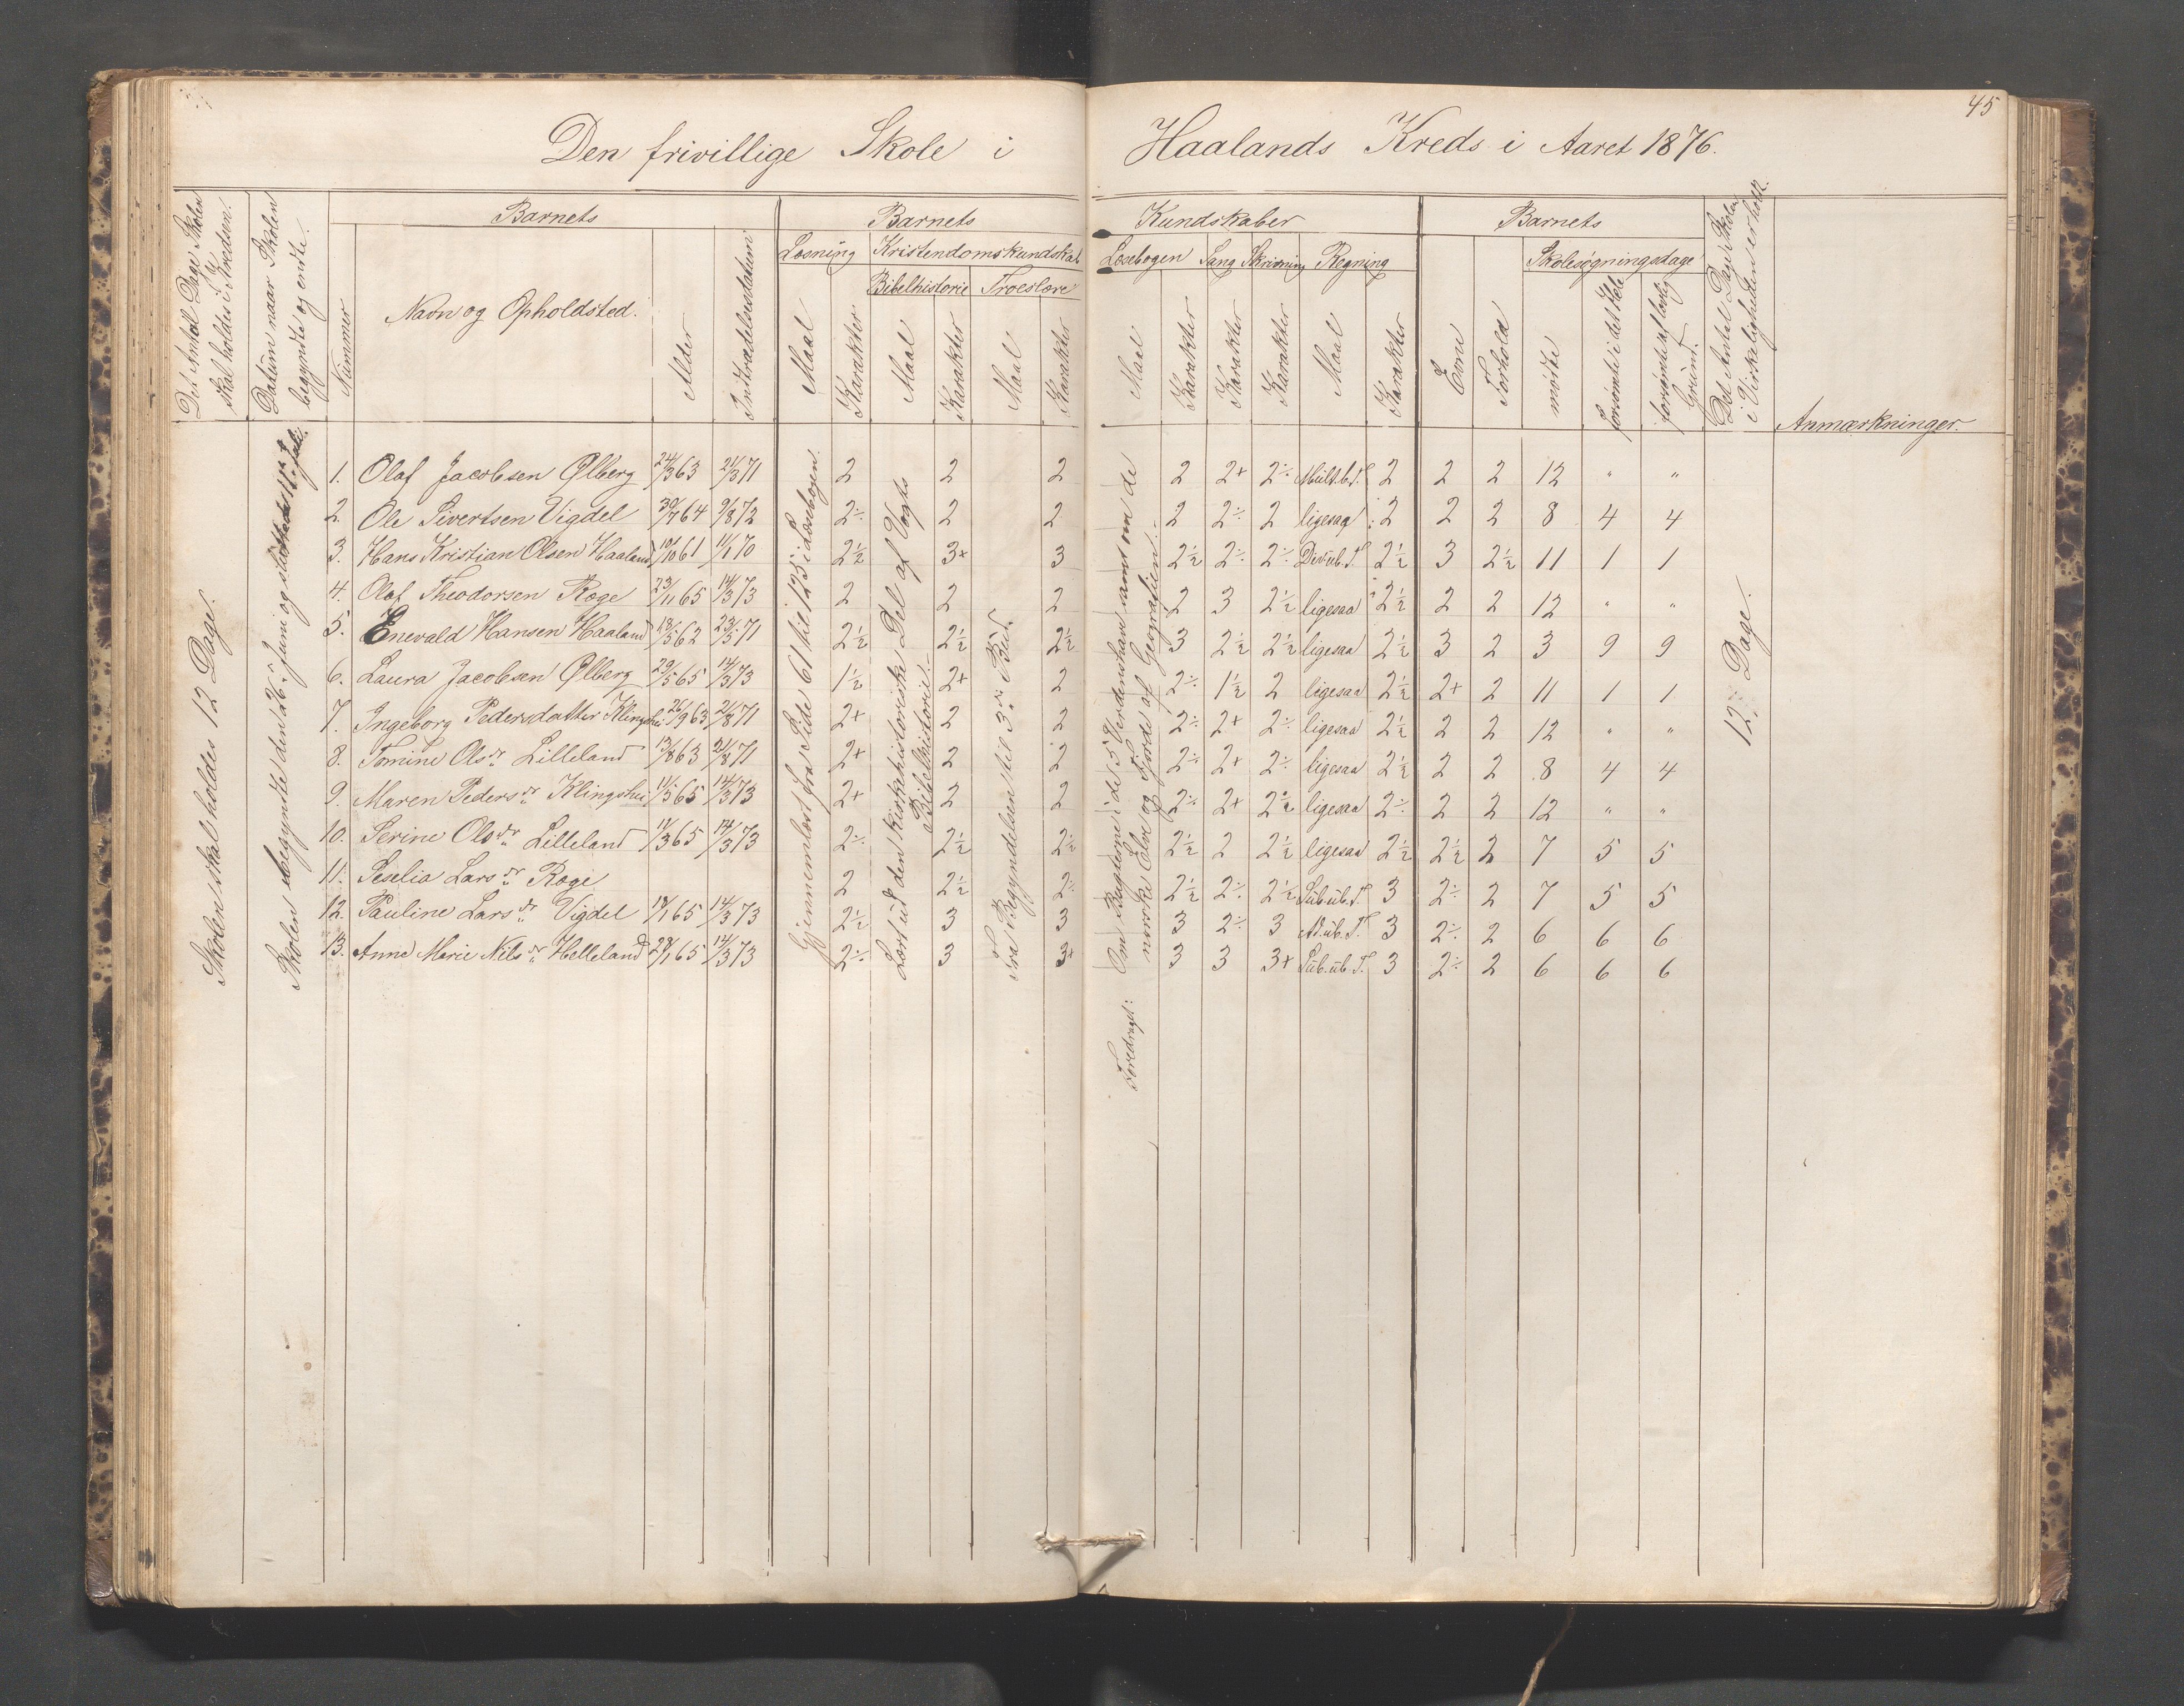 45
Den frivillige Skole i Haalands Kreds i Aaret 1876.
Det Antal Dage Skolen skal holdes i Kredsen.
Datum naar Skolen begyndte og endte.
Barnets
Nummer
Navn og Opholdsted.
Alder
Indtrædelsesdatum
Barnets Kundskaber
Læsning
Kristendomskundskab
Bibelhistorie
Troeslære
Læsebogen
Sang
Skrivning
Regning
Maal
Karakter
Maal
Karakter
Maal
Karakter
Maal
Karakter
Karakter
Karakter
Maal
Karakter
Barnets
Evne
Forhold
Skolesøgningsdage
mødte
forsømte i det Hele
forsømte af lovlig Grund.
Det Antal Dage Skolen i Virkeligheden er holdt.
Anmærkninger.
Skolen skal holdes 12 Dage.
Skolen begyndte den 26. Juni og sluttede
Gjennemlæst fra Side 61 til 125 i Læsebogen.
Læst ud den kirkehistoriske Del af Vogts Bibelhistorie.
Fra Begyndelsen til 3. Bud.
Foredraget: Om Bugterne i de 5 Verdenshav samt om de norske Elve og Fjorde af Geografien.
12 Dage.
1. Olaf Jacobsen Ølberg 24/3 63 21/8 71 2 2 2 2 2+ 2÷ Mult.b.T. 2 2 2 12 " "
2. Ole Sivertsen Vigdel 30/7 64 9/8 72 2÷ 2 2 2 2÷ 2 ligesaa 2 2 2 8 4 4
3. Hans Kristian Olsen Haaland 10/10 61 11/1 70 2½ 3+ 3 2½ 2÷ 2÷ Div.ub.T. 2½ 3 2½ 11 1 1
4. Olaf Theodorsen Røge 23/11 65 14/3 73 2 2 2 2 3 2½ ligesaa 2½ 2 2 12 " "
5. Enevald Hansen Haaland 18/5 62 23/5 71 2½ 2½ 2½ 3 2½ 2½ ligesaa 2½ 3 2 3 9 9
6. Laura Jacobsen Ølberg 29/5 65 14/3 73 1½ 2+ 2 2÷ 1½ 2 ligesaa 2½ 2+ 2 11 1 1
7. Ingeborg Pedersdatter Klingshei 26/9 63 21/8 71 2+ 2 2 2÷ 2+ 2÷ ligesaa 2½ 2 2 12 " "
8. Tomine Olsdr Lilleland 13/8 63 21/8 71 2+ 2 2 2÷ 2+ 2÷ ligesaa 2½ 2 2 8 4 4
9. Maren Pedersdr Klingshei 11/5 65 14/3 73 2+ 2 2 2÷ 2+ 2½ ligesaa 2÷ 2 2 12 " "
10. Serine Olsdr Lilleland 11/3 65 14/3 73 2÷ 2½ 2½ 2½ 2 2½ ligesaa 2½ 2½ 2 7 5 5
11. Seselia Larsdr Røge 2 2½ 2÷ 2½ 2÷ 2½ Sub.ub.T. 3 2÷ 2 7 5 5
12. Pauline Larsdr Vigdel 18/1 65 14/3 73 2½ 3 3 3 2÷ 3 Ad.ub.T. 3 2÷ 2 6 6 6
13. Anne Marie Nilsdr Helleland 28/1 65 14/3 73 2÷ 3 3+ 3 3 3+ Sub.ub.T. 3 2÷ 2 6 6 6